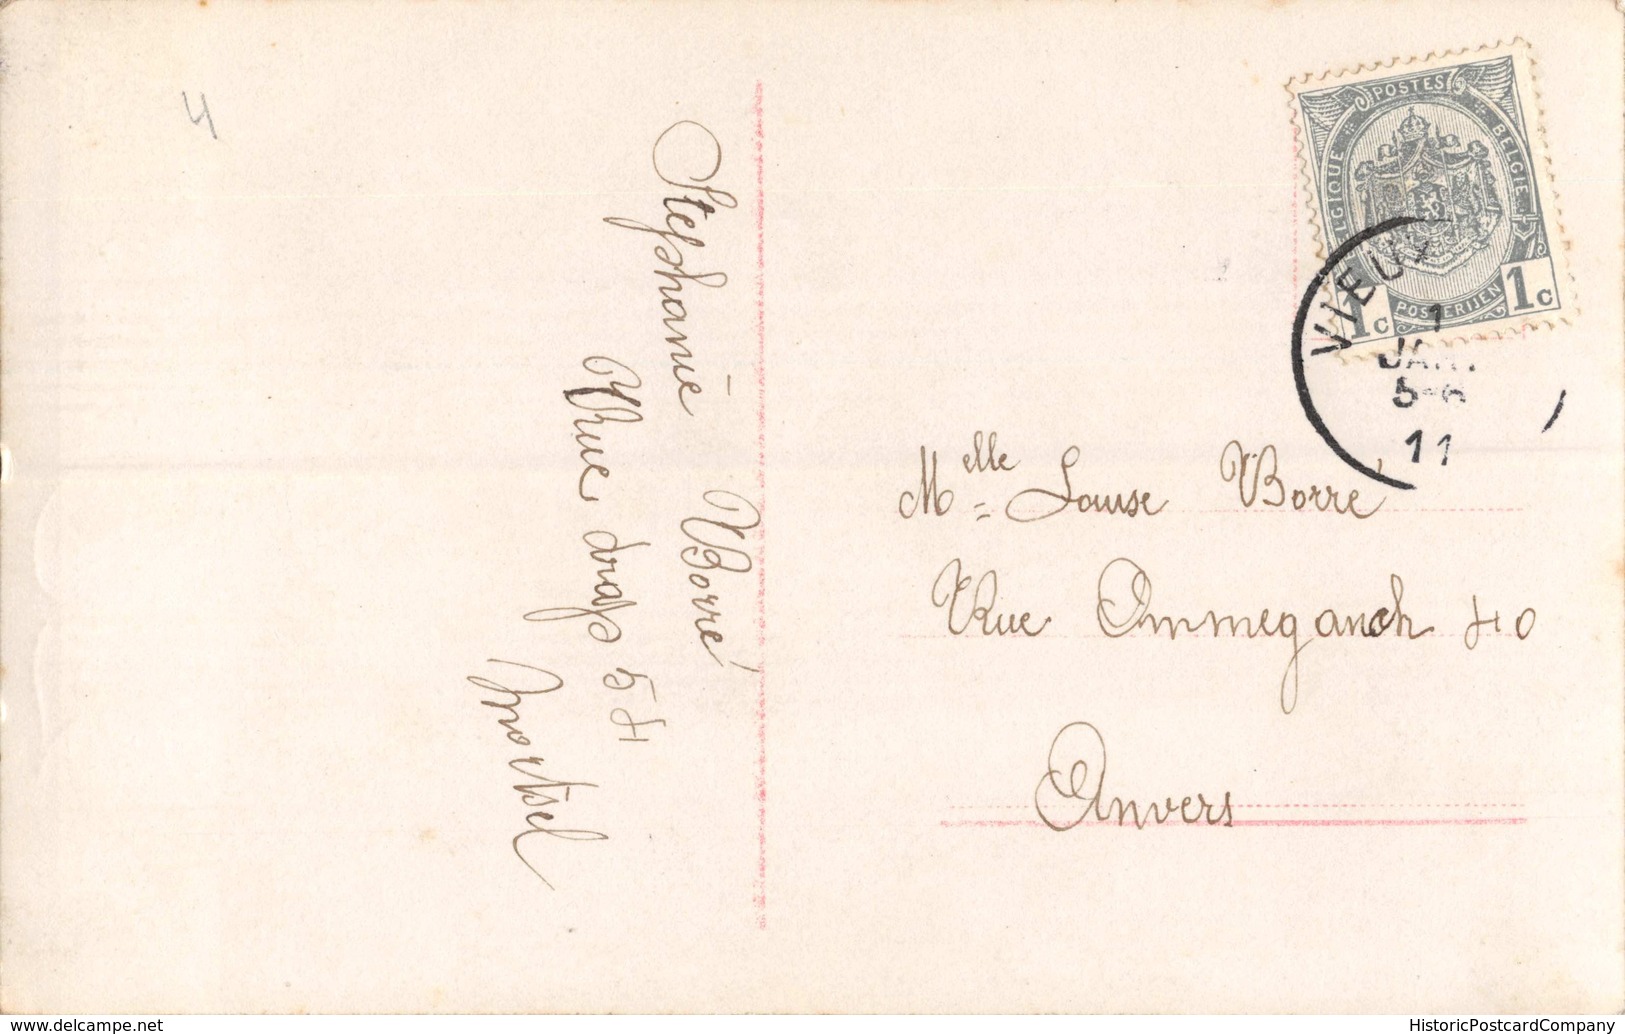 4
Stephanie Borré
Rue draps 54
Mortsel
POSTES
BELGIQUE BELGIE
POSTERIJEN
1c 1c
VIEUX
1
JANV
5-6
11
Melle Louise Borré
Rue Ommeganck 40
Anvers
delcampe.net
HistoricPostcardCompany